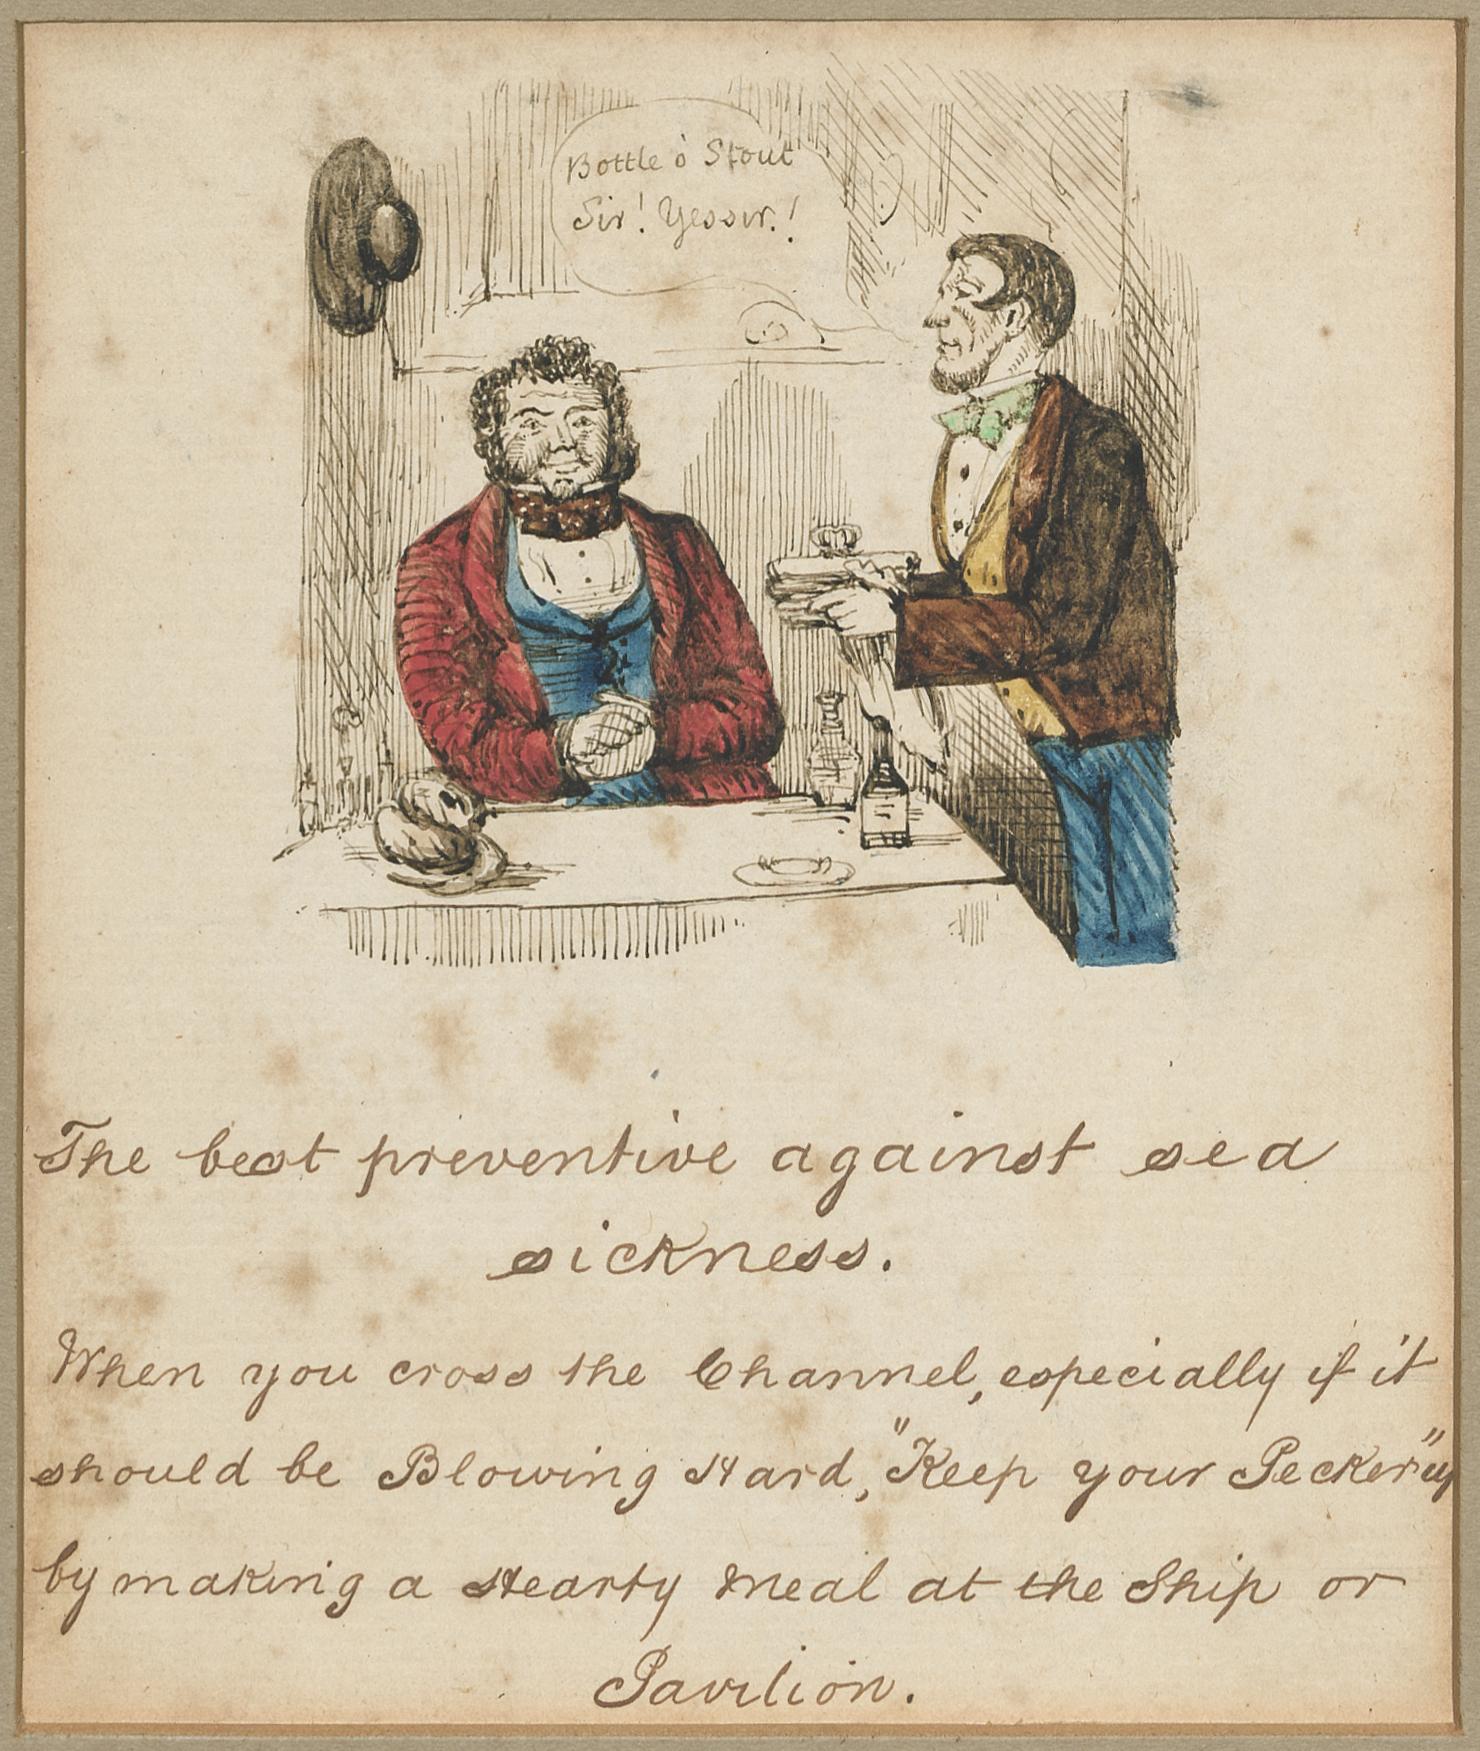 Bottle ò Stout
Sir! Yessir.!
The best preventive against sea
sickness.
When you cross the Channel, especially if it
should be Blowing Hard, "Keep your Pecker" up
by making a Hearty Meal at the Ship or
Pavilion.